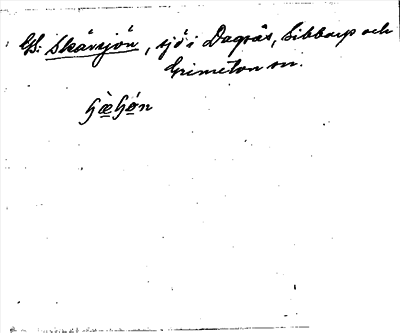 GS: Skärsjön, sjö i Dagsås, Sibbarp och
Grimeton sn.
ɧæ̀ɧø̀n